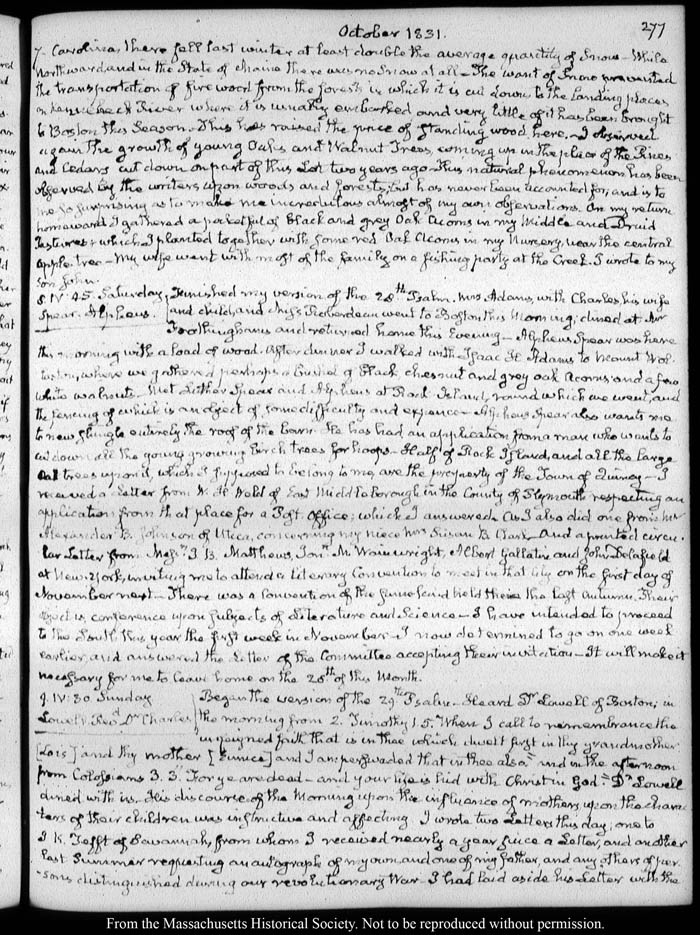 October 1831.
277
7. Carolina, there fell last winter at least double the average quantity of Snow — While
northward and in the State of Maine there was no Snow at all — The want of Snow prevented
the transportation of fire wood from the forests in which it is cut down to the Landing places
on Kennebeck River where it is usually embarked and very little of it has been brought
to Boston this Season. This has raised the price of standing wood here. I observed
again the growth of young Oaks and Walnut Trees, coming up in the place of the Pines
and Cedars cut down on part of this Lot two years ago. This natural phenomenon has been
observed by the writers upon woods and forests; but has never been accounted for, and is to
me so surprising as to make me incredulous almost of my own observations. On my return
homeward I gathered a pocketful of Black and grey Oak Acorns in my Middle and Druid
Pastures, which I planted together with some red Oak Acorns in my Nursery, near the central
apple tree — My wife went with most of the family on a fishing party at the Creek. I wrote to my
Son John.
8. IV:45. Saturday
Spear. Alpheus.
Finished my version of the 28th Psalm. Mrs Adams, with Charles, his wife
and child, and Miss went to Boston this Morning; dined at Mr
Frothingham's and returned home this Evening — Alpheus Spear was here
this morning with a load of wood. After dinner I walked with Isaac H. Adams to Mount Wol-
laston, where we gathered perhaps a bushel of Black chesnut and grey oak Acorns and a few
white walnuts — Met Luther Spear and Alpheus at Rock Island, round which we went, and
the fencing of which is an object of some difficulty and expence — Alpheus Spear also wants me
to new shingle entirely the roof of the Barn. He has had an application from a man who wants to
cut down all the young growing birch trees for hoops — Half of Rock Island, and all the large
Oak trees upon it, which I supposed to belong to me, are the property of the Town of Quincy — I
received a Letter from of East Middleborough in the County of Plymouth respecting an
application from that place for a Post Office; which I answered. As I also did one from Mr
Alexander B. Johnson of Utica, concerning my niece Mrs Susan B. Clark. And a printed circu-
lar Letter from Messrs J. B. Matthews, Jona. M. Wainwright, Albert Gallatin and John Delafield
at New-York, inviting me to attend a Literary Convention to meet in that City on the first day of
November next — There was a Convention of the same kind held there the last Autumn. Their
object is conference upon subjects of Literature and Science — I have intended to proceed
to the South this year the first week in November — I now determined to go on one week
earlier, and answered the Letter of the Committee accepting their invitation — It will make it
necessary for me to leave home on the 26th of this Month.
9. IV:30. Sunday
Lowell. Revd. Dr Charles
Began the version of the 29th Psalm — Heard Dr Lowell of Boston; in
the morning from 2. Timothy 1.5. When I call to remembrance the
unfeigned faith that is in thee which dwelt first in thy grandmother
[Lois] and thy mother [Eunice] and I am persuaded that in thee also" and in the afternoon
from Colossians 3. 3. For ye are dead — and your life is hid with Christ in God." Dr Lowell
dined with us. His discourse of the Morning upon the influence of mothers upon the charac-
ters of their children was instructive and affecting. I wrote two Letters this day; one to
I. K. Tefft of Savannah, from whom I received nearly a year since a Letter, and another
last Summer requesting an autograph of my own and one of my father, and any others of per-
sons distinguished during our revolutionary War — I had laid aside his Letter with the
From the Massachusetts Historical Society. Not to be reproduced without permission.